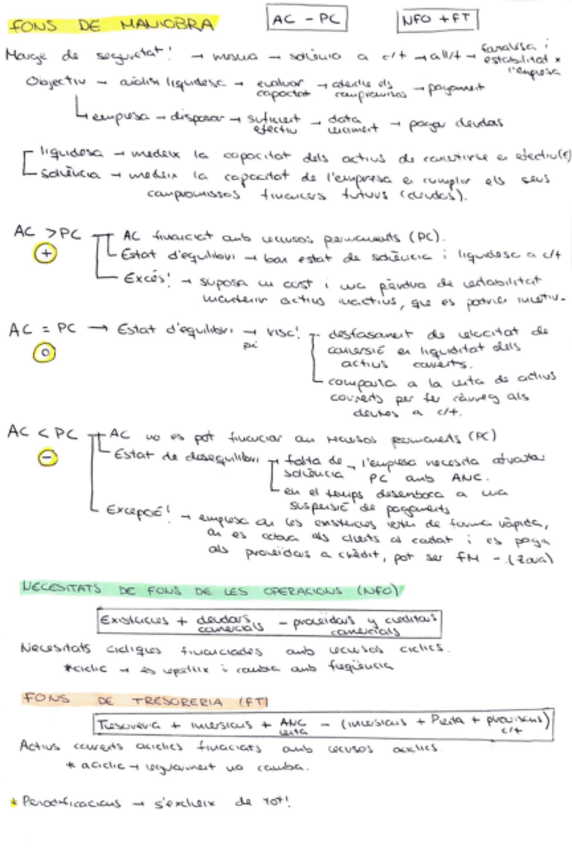 FONS DE MANIOBRA
AC - PC
NFO + FT
Marge de seguretat! → mesura → solvència a c/t → a ll/t → garanteix i estabilitat x l'empresa
Objectiu → anàlisi liquidesa → evaluar capacitat → atendre els compromisos → pagament
↳ empresa → disposar → suficient efectiu → data venciment → pagar deudas
liquidesa → medeix la capacitat dels actius de convertirse en efectiu(€)
Solvència → medeix la capacitat de l'empresa a cumplir els seus
compromissos financers futurs (deudas).
AC > PC
AC financiat amb recursos permanents (PC).
+
Estat d'equilibri → bon estat de solvència i liquidesa a c/t
Excés! → suposa un cost i una pèrdua de rentabilitat
mantenir actius inactius, que es podrien invertir.
AC = PC → Estat d'equilibri → risc! desfasament de velocitat de
0
conversió en liquiditat dels
actius corrents.
comporta a la venta de actius
corrents per fer càrreg als
deutes a c/t.
AC < PC
AC no es pot financiar amb recursos permanents (PC)
-
Estat de desequilibri → falta de solvència → l'empresa necesita
PC amb ANC.
en el temps desemboca a una
suspensió de pagaments
Excepció! → empresa on les existències roten de forma ràpida,
on es cobra als clients al contat i es paga
als proveïdors a crèdit, pot ser FM -. (Zara)
NECESITATS DE FONS DE LES OPERACIONS (NFO)
Existències + deudors comercials - proveïdors y creditors comercials
Necesitats cícliques financiades amb recursos cíclics.
*cíclic → es repeteix i canvia amb freqüència
FONS DE TRESORERIA (FT)
Tresoreria + inversions + ANC venta - (inversions + Pventa + provisions) c/t
Actius corrents acíclics financiats amb recursos acíclics
* acíclic → regularment no canvia.
* Periodificacions → s'excluïx de tot!